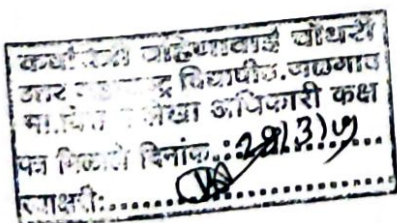 कवयित्री बहिणाबाई चौधरी
उत्तर महाराष्ट्र विद्यापीठ.जळगाव
मा.वित्त व लेखा अधिकारी कक्ष
पत्र मिळाले दिनांक.:
स्वाक्षरी: